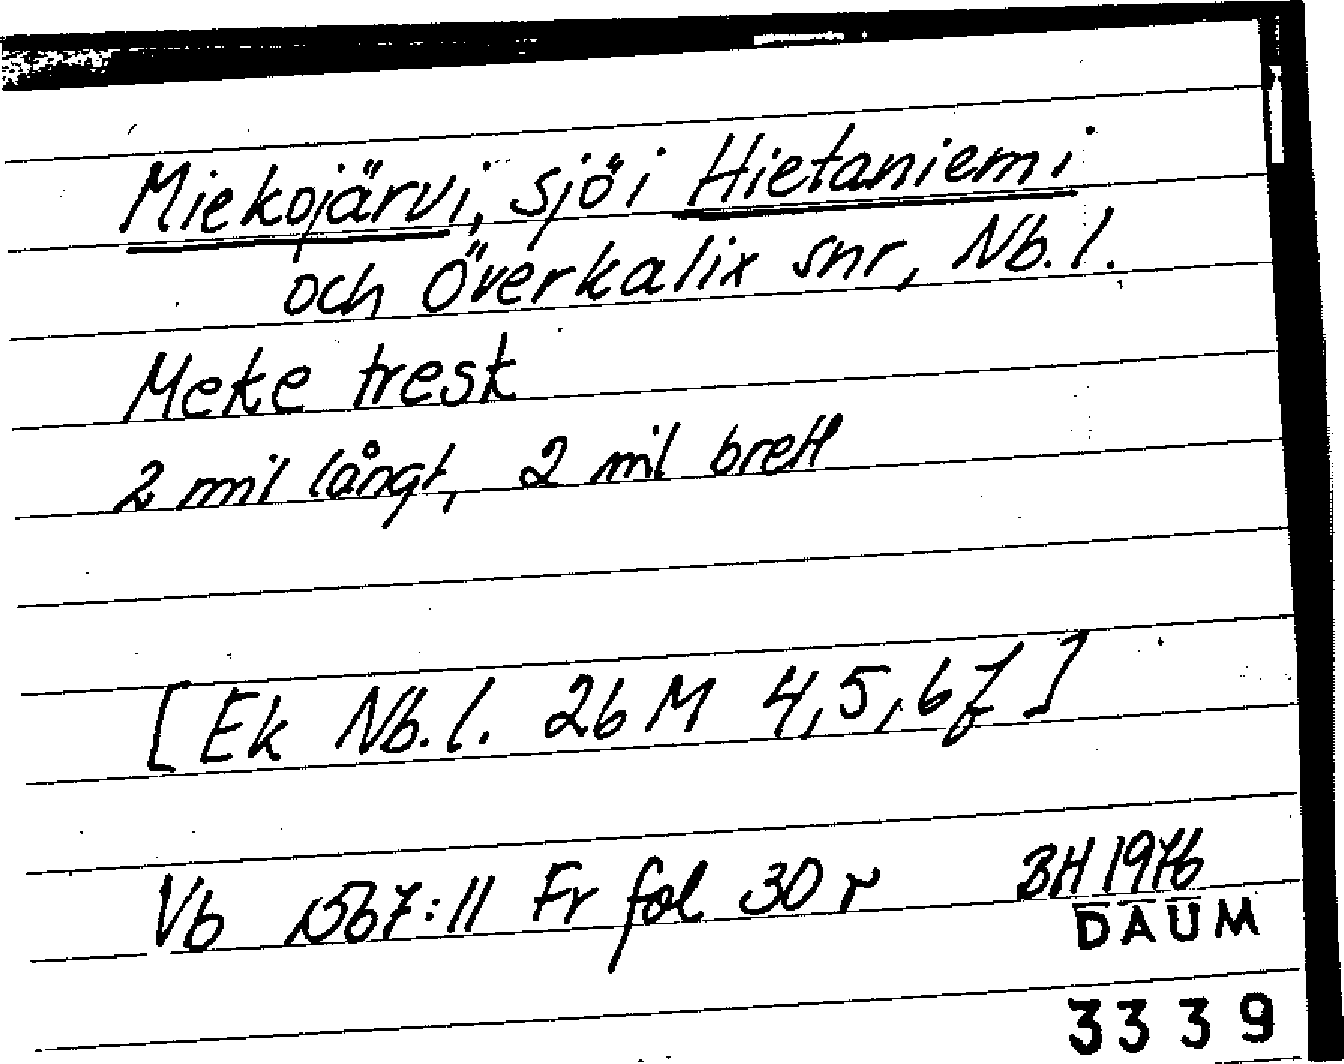 Miekojärvi, sjö i Hietaniemi
och Överkalix snr, Nb. l.
Meke tresk
2 mil långt, 2 mil brett
[Ek Nb. l. 26 M 4,5,6f]
Vb 1567:11 Fr fol 30 r BH 1976
DAUM
3339